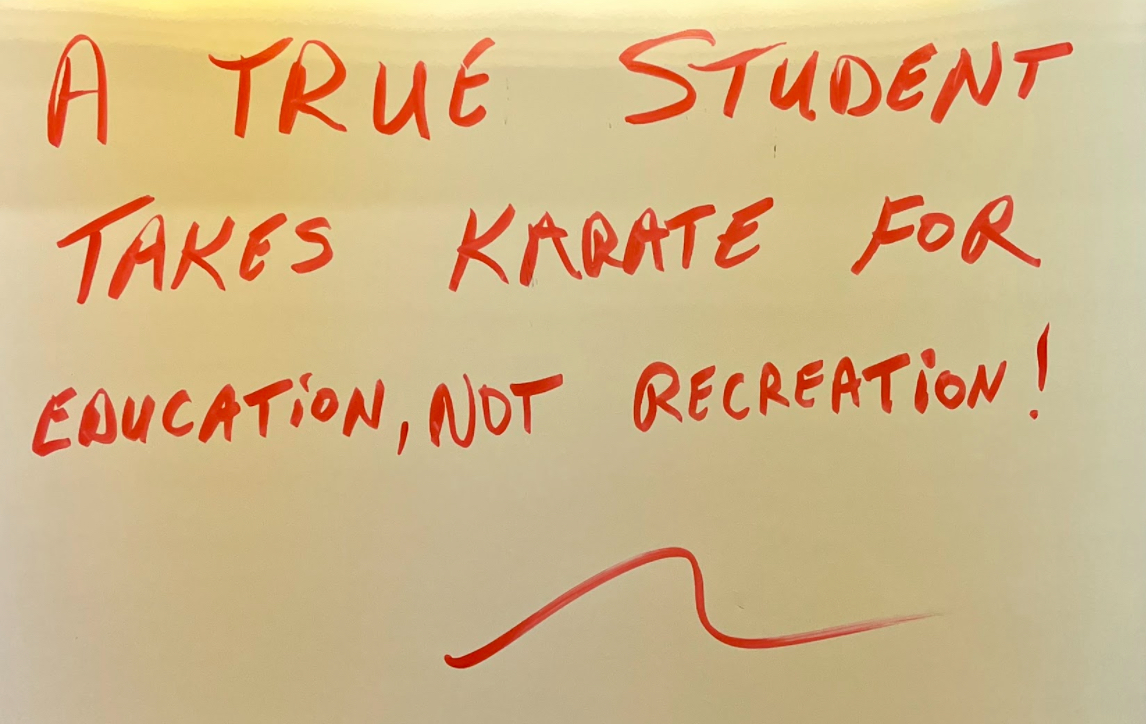 A TRUE STUDENT
TAKES KARATE FOR
EDUCATION, NOT RECREATION!